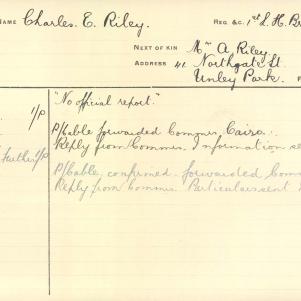 NAME Charles. E. Riley. REG. &C. 1st L. H. Br
NEXT OF KIN Mrs A Riley
ADDRESS 41 Northgate St.
Unley Park.
1/p "No official report."
P/Cable forwarded Commrs Cairo.
Reply from Commrs. Information se
Further 1/p P/Cable confirmed forwarded Comm
Reply from Commrs. Particulars sent